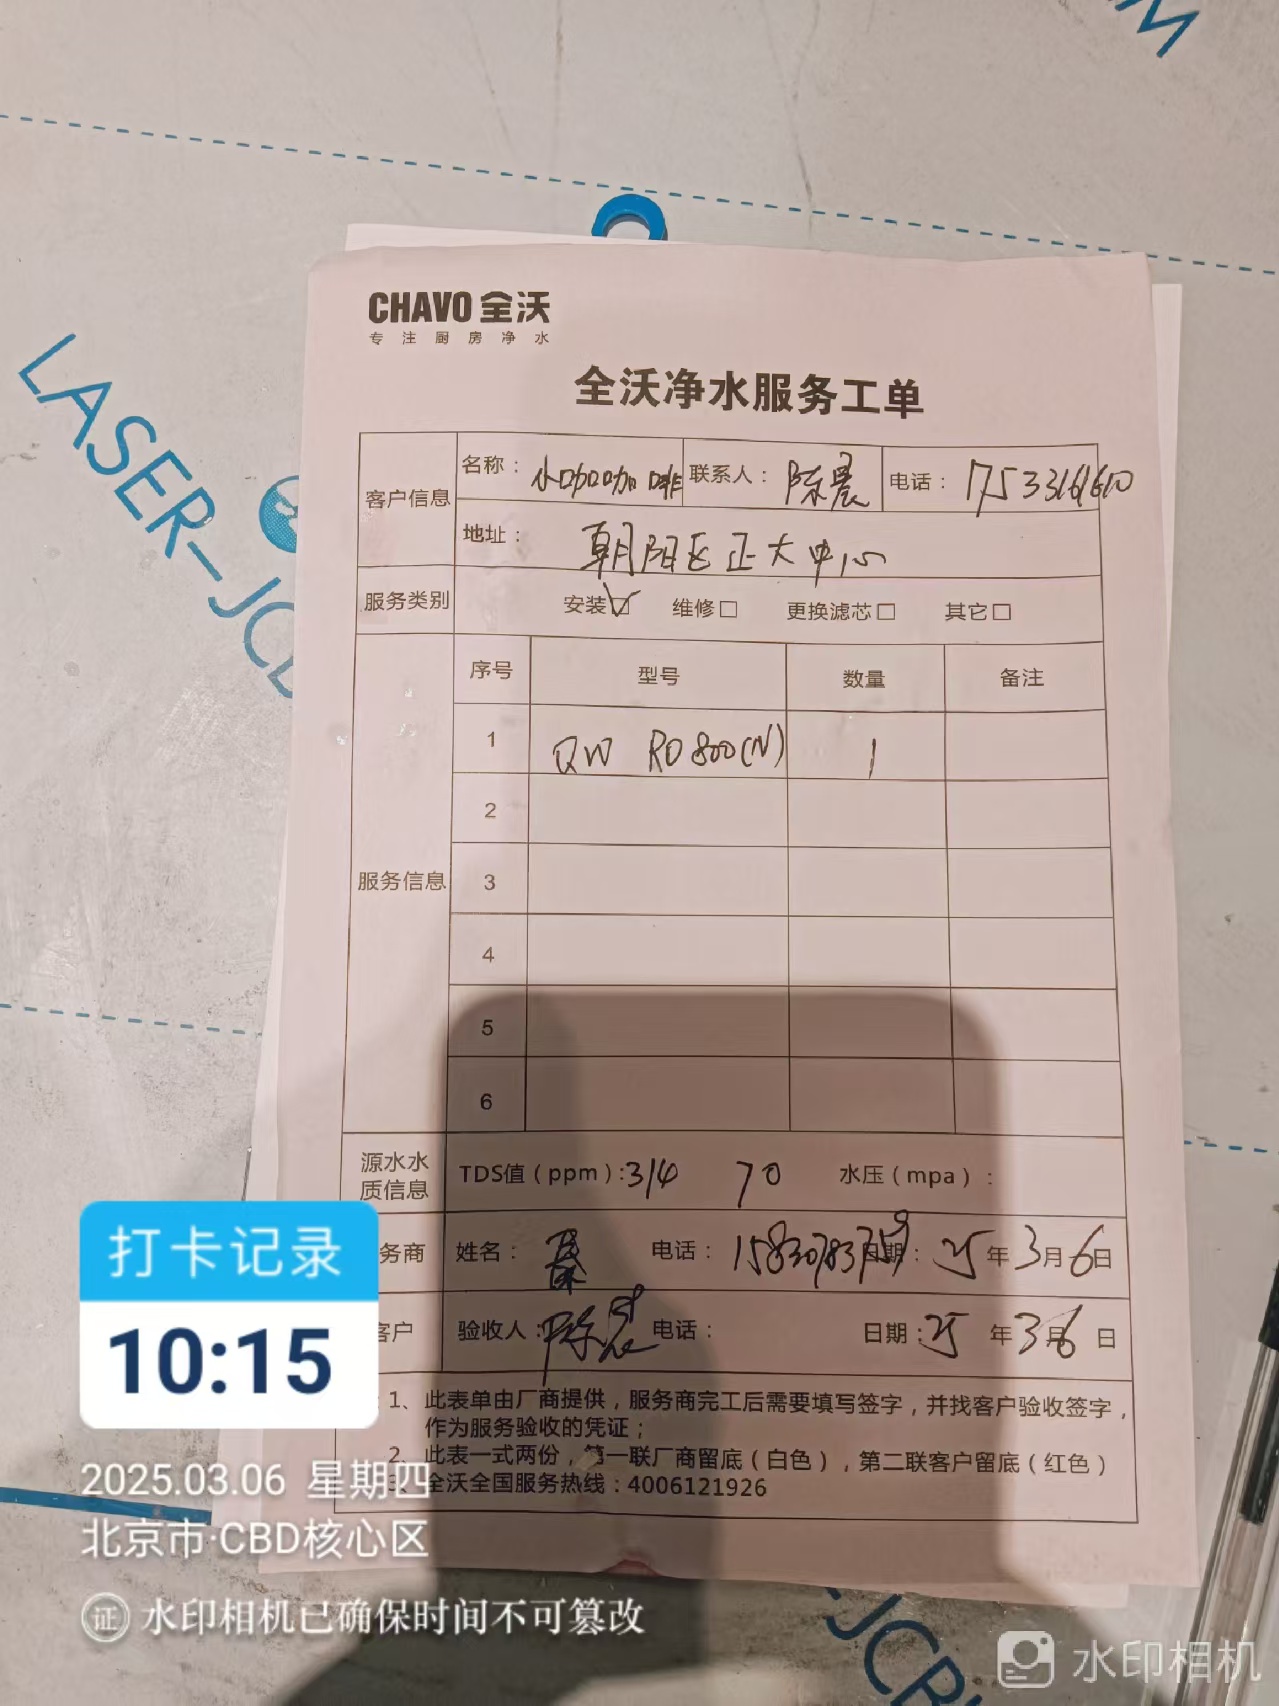 LASER-JCB
CHAVO 全沃
专注厨房净水
全沃净水服务工单
客户信息 名称： 小咖咖啡 联系人： 陈晨 电话：
地址： 朝阳区正大中心
服务类别 安装☑ 维修□ 更换滤芯□ 其它□
服务信息 序号 型号 数量 备注
1 QW RO800(N) 1
2
3
4
5
6
源水水质信息 TDS值（ppm）:314 70 水压（mpa）：
务商 姓名： 电话： 日期： 25年3月6日
客户 验收人： 陈晨 电话： 日期：25年3月6日
1、此表单由厂商提供，服务商完工后需要填写签字，并找客户验收签字，
作为服务验收的凭证；
2、此表一式两份，第一联厂商留底（白色），第二联客户留底（红色）
3、全沃全国服务热线：4006121926
打卡记录
10:15
2025.03.06 星期四
北京市·CBD核心区
证 水印相机已确保时间不可篡改
水印相机